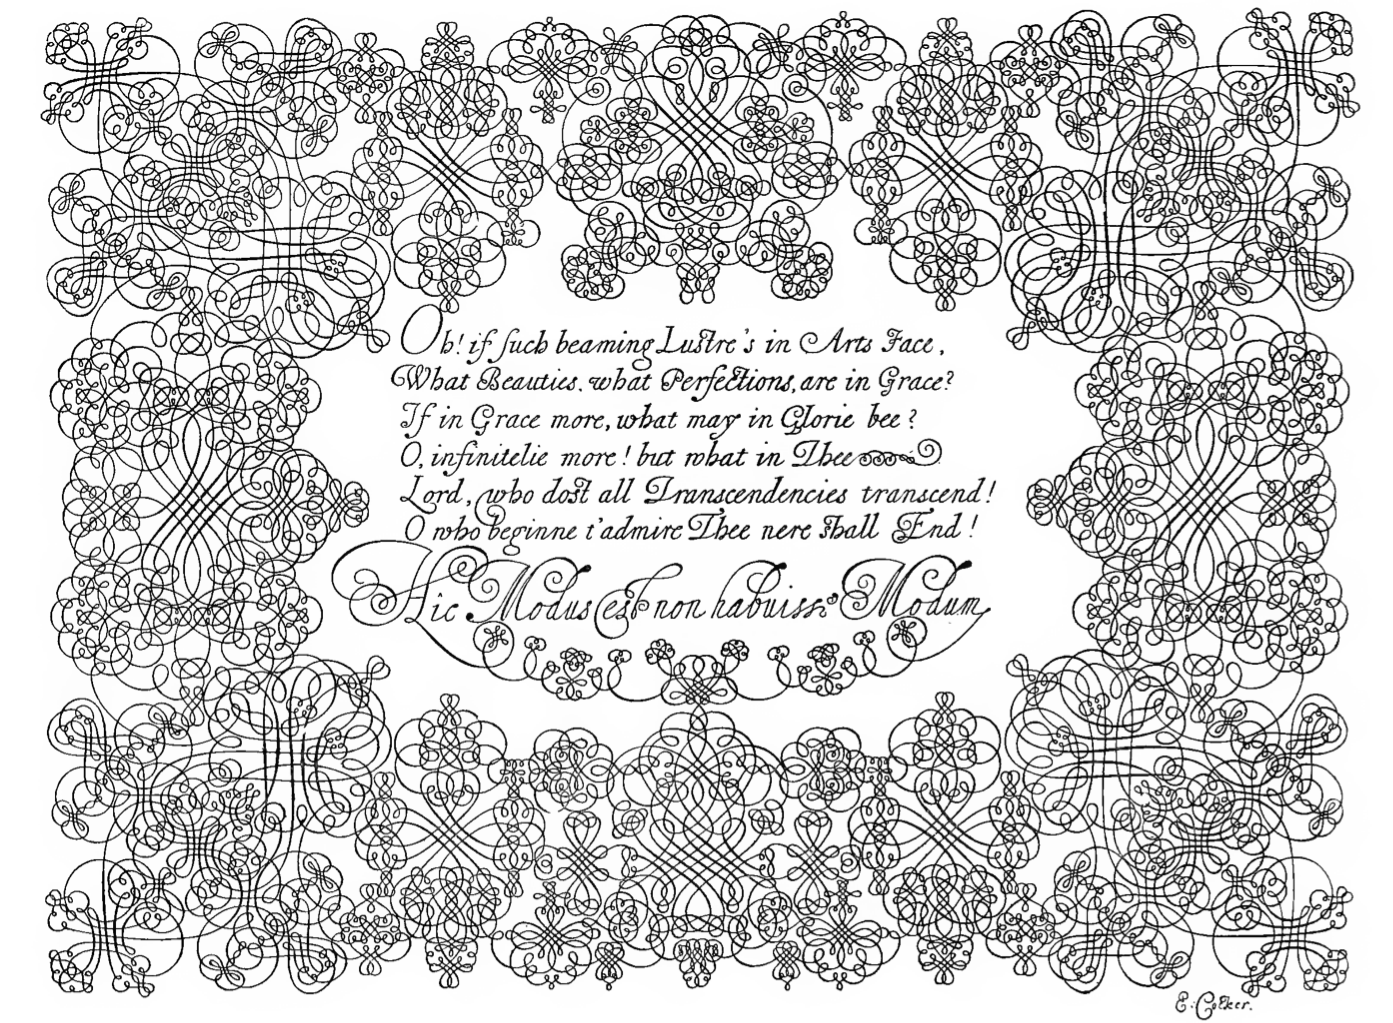 Oh! if such beaming Lustre's in Arts Face,
What Beauties, what Perfections, are in Grace?
If in Grace more, what may in Glorie bee?
O, infinitelie more! but what in Thee
Lord, who dost all Transcendencies transcend!
O who beginne t'admire Thee nere shall End!
Hic Modus est non habuisse Modum
E: Cocker.